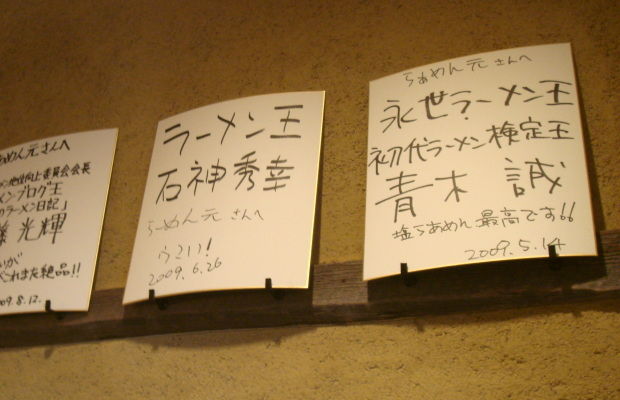 らぁめん元さんへ
永世ラーメン王
初代ラーメン検定王
青木 誠
塩らあめん最高です!!
2009.5.14
ラーメン王
石神秀幸
らーめん元さんへ
ウマい!
2009.6.26
らぁめん元さんへ
地位向上委員会会長
メンブログ王
ラーメン日記」
光輝
が
これまた絶品!!
09.8.12.